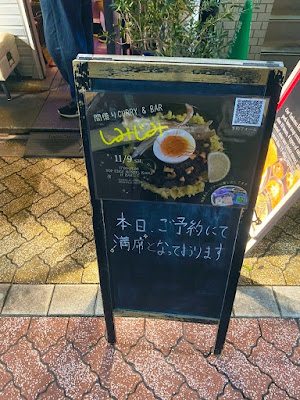 間借りCURRY & BAR
しみじみ
11/9
本日、ご予約にて
満席となっております